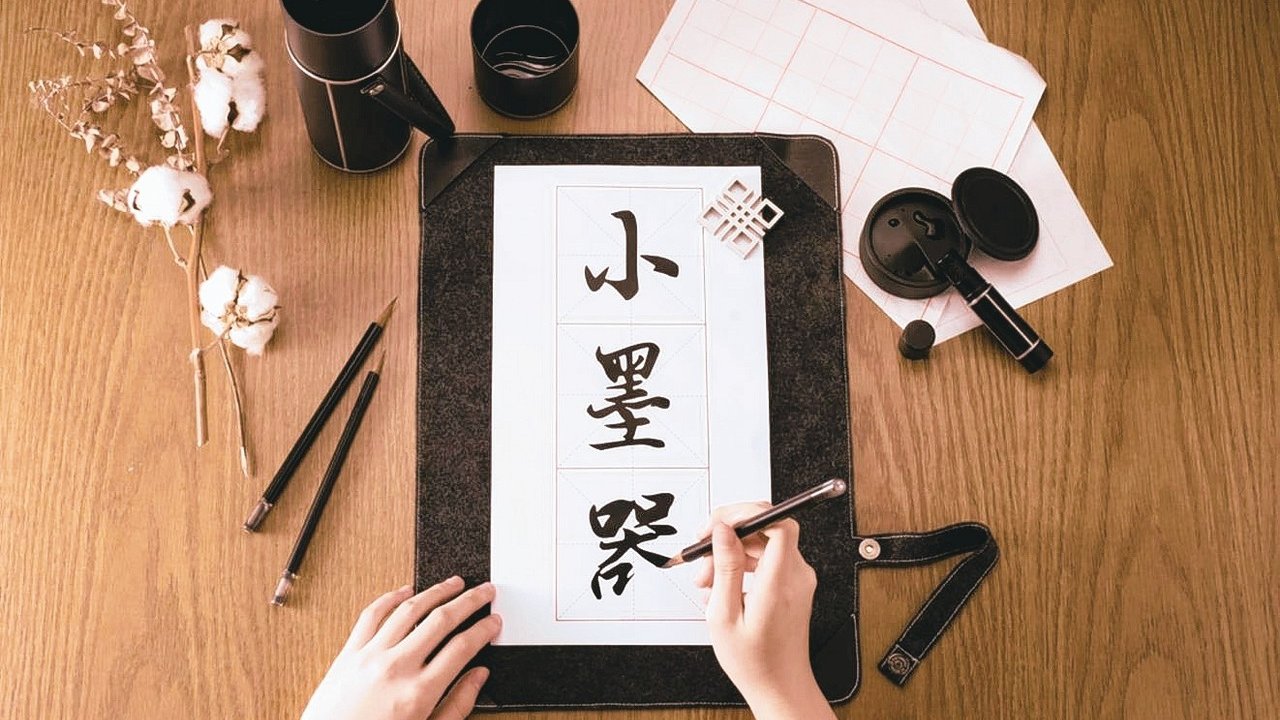 小墨器